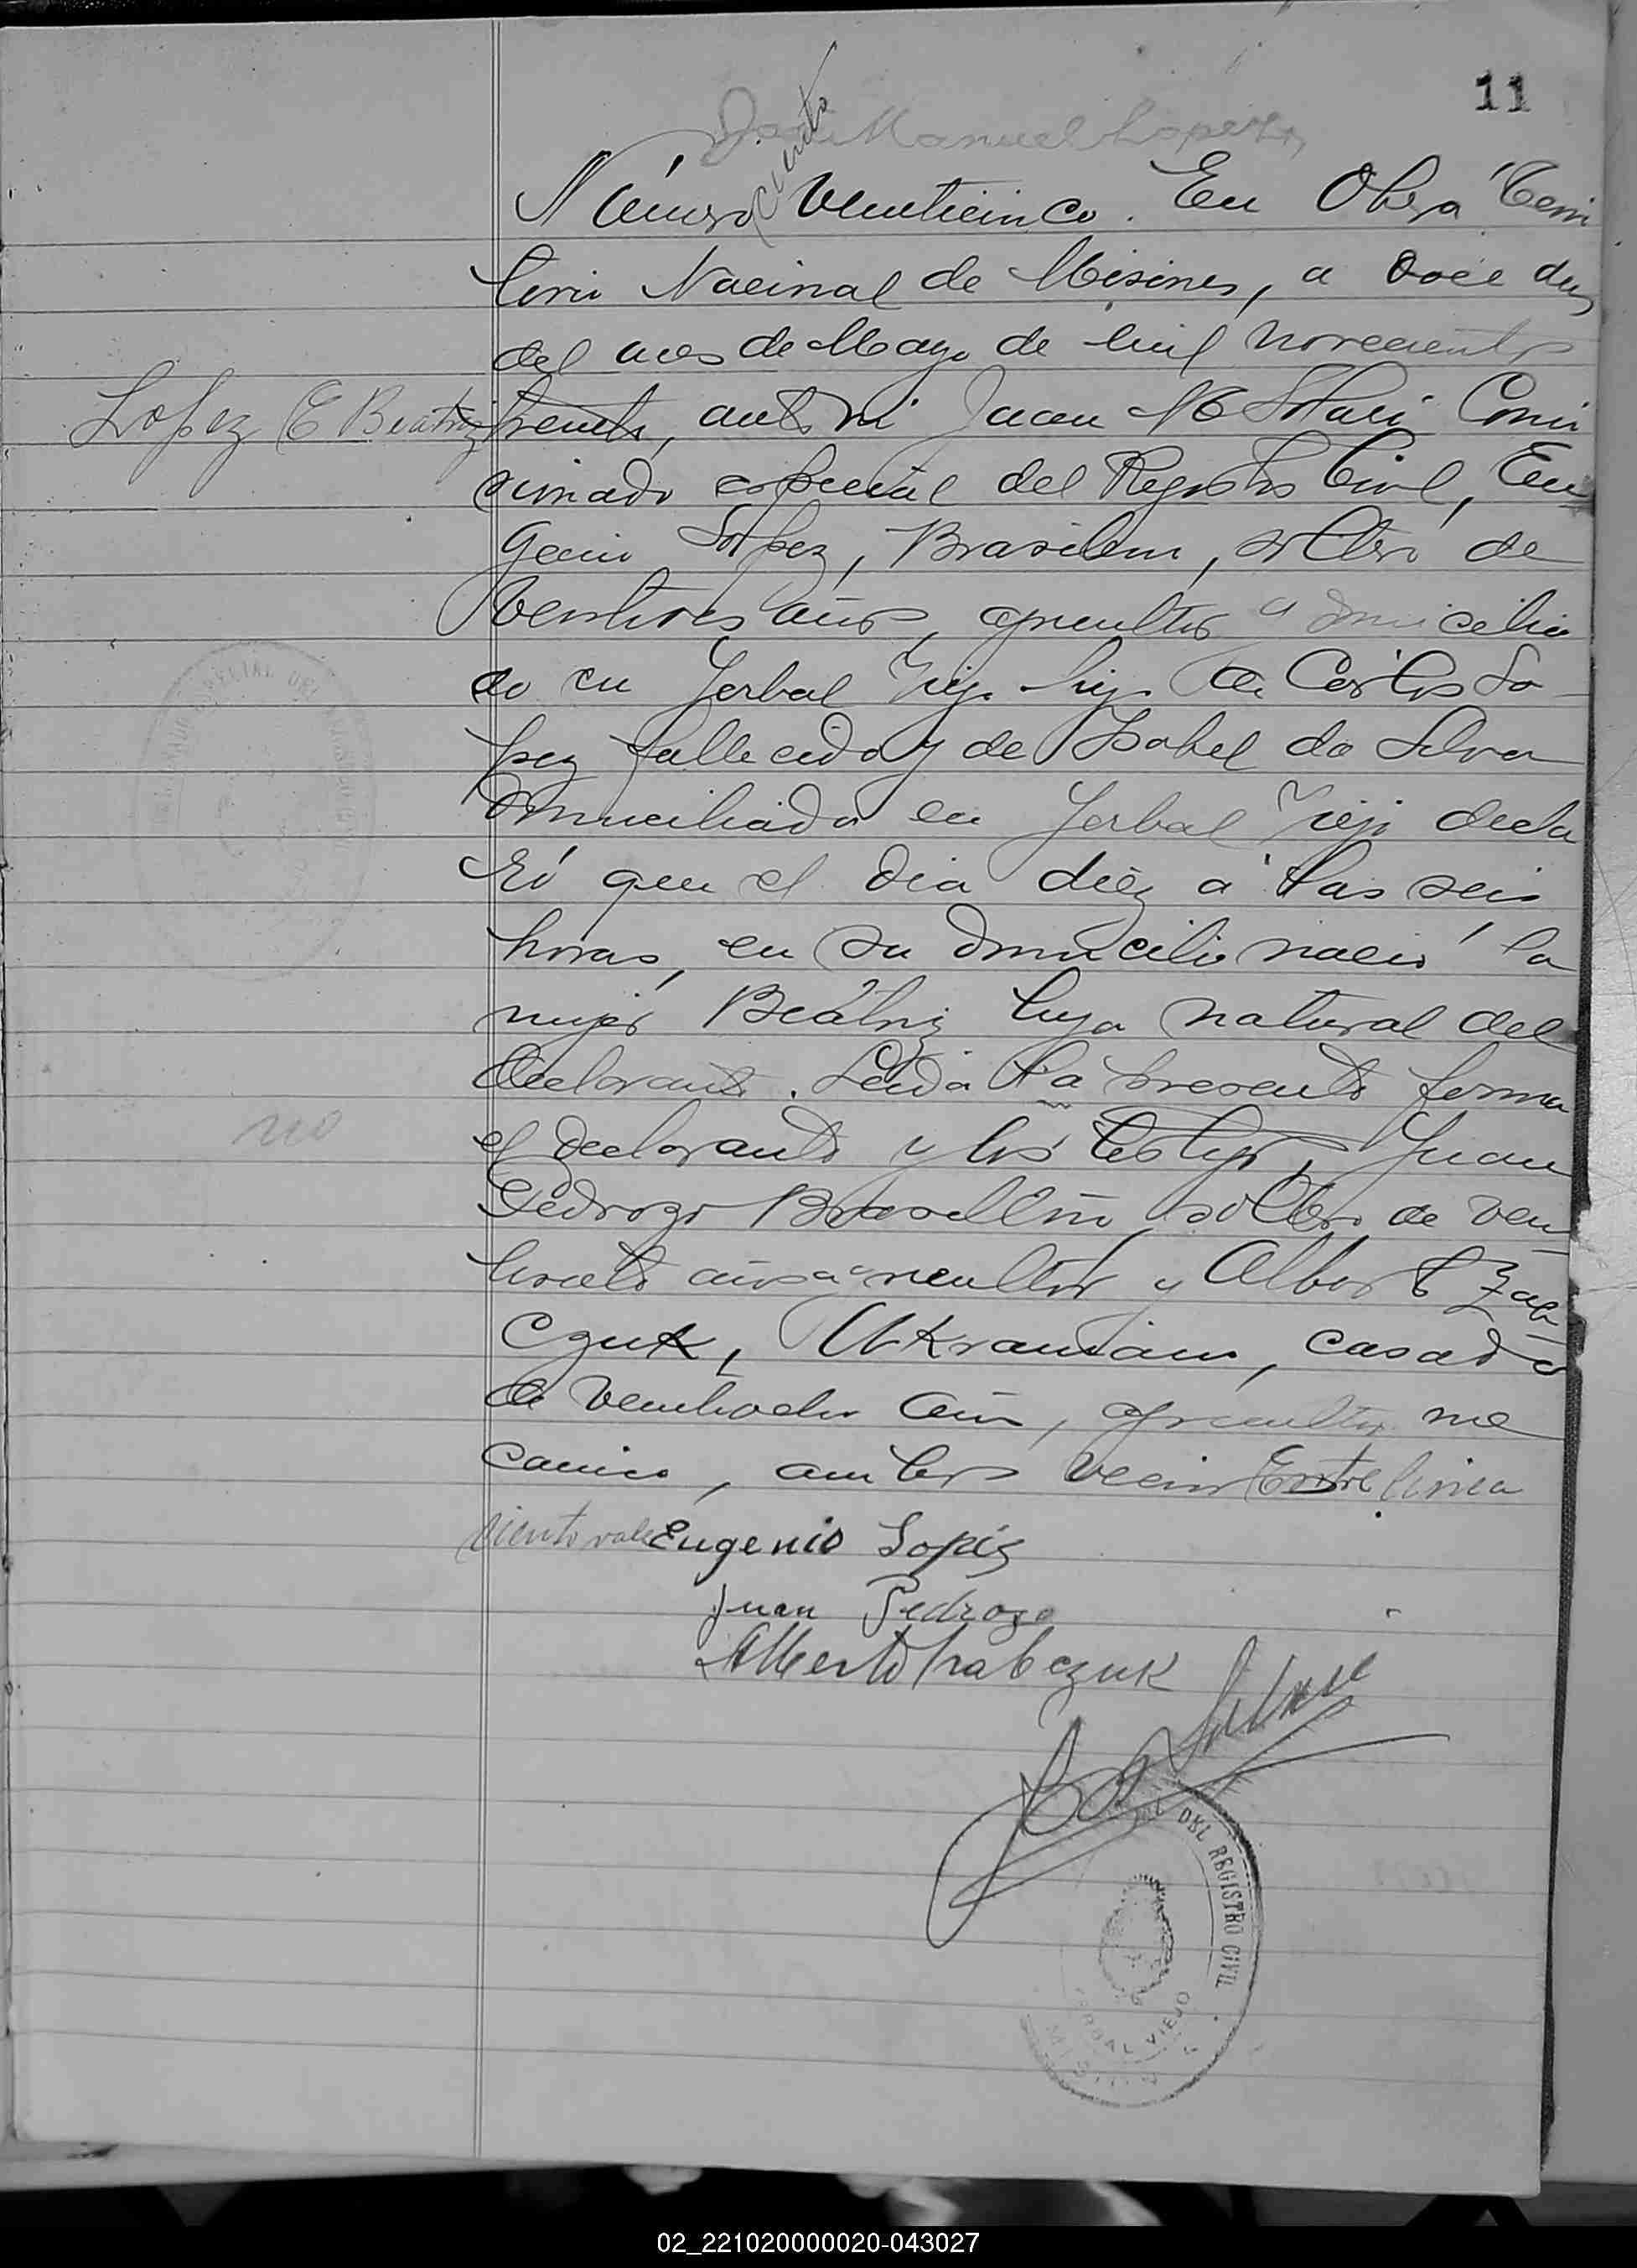 11
José Manuel Lopez
ciento
Número ventiseinco. En Obera Terri
torio Nacional de Misiones, a doce dias
del mes de Mayo de mil novecientos
Lopez E Beatriz
treinta, ante mi Juan M Solari Comi
sionado especial del Registro Civil, Eu
genio Lopez, Brasilero, soltero de
ventitres años, agricultor domicilia
do en Yerbal Viejo hijo de Carlos Lo
pez fallecido y de Isabel da Silva
domiciliada en Yerbal Viejo decla
ró que el dia diez a las seis
horas, en su domicilio nació la
mujer Beatriz hija natural del
declarante. Leida la presente firma
no
el declarante y los testigos, Juan
Pedrozo Brasilero, soltero de ven
años agricultor y Alberto Zab
czuk, Ukraniano, casado
de ventiocho años, agricultor me
canico, ambos vecinos Entre linea
ciento vale
Eugenio Lopes
Juan Pedrozo
Alberto Zabczuk
DEL REGISTRO CIVIL
YERBAL VIEJO
02_221020000020-043027